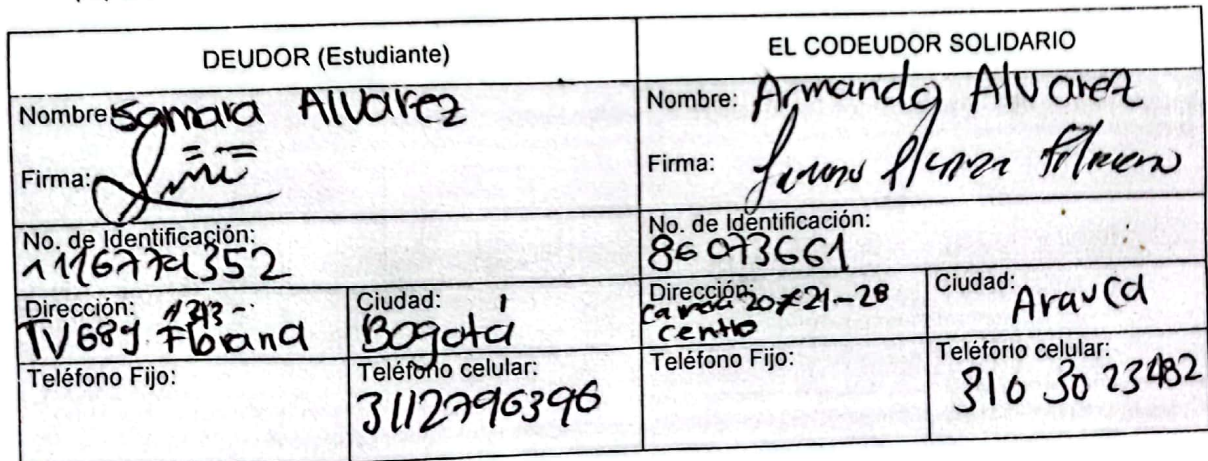 DEUDOR (Estudiante)
Nombre: Samara Alvarez
Firma:
No. de Identificación:
1116779352
Dirección:
TV68g Floriana
Ciudad:
Bogotá
Teléfono Fijo:
Teléfono celular:
3112796396
EL CODEUDOR SOLIDARIO
Nombre: Armando Alvarez
Firma:
No. de Identificación:
86073661
Dirección:
20#21-28
centro
Ciudad:
Arauca
Teléfono Fijo:
Teléfono celular:
310 30 23482